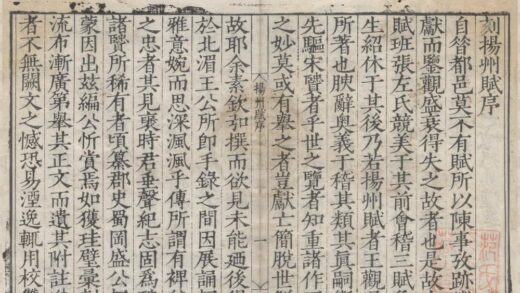 刻揚州賦序
自昔都邑莫不有賦所以陳事攷跡
獻而鑒觀盛衰得失之故者也是故
賦班張左氏競美于其前會稽三賦
生紹休于其後乃若揚州賦者王觀
所著也腴辭奥義于稽其類其眞嗣
先驅宋贒者乎世之覽者知重諸作
之妙莫或有舉之者豈獻亡簡脫世
揚州賦序
一
故耶余素欽撰而欲見未能廼後
於北湄王公所即手錄之間因展誦
雅意婉而思深渢渢乎傳所謂有裨
之忠者其見褒時君垂聲紀志固爲
諸贒所稀有者頃纂郡史蜀岡盛公
蒙因出玆編公忻賞焉如獲珪璧彙
流布漸廣第舉其正文而遺其附註
者不無闕文之憾恐易湮逸輒用校